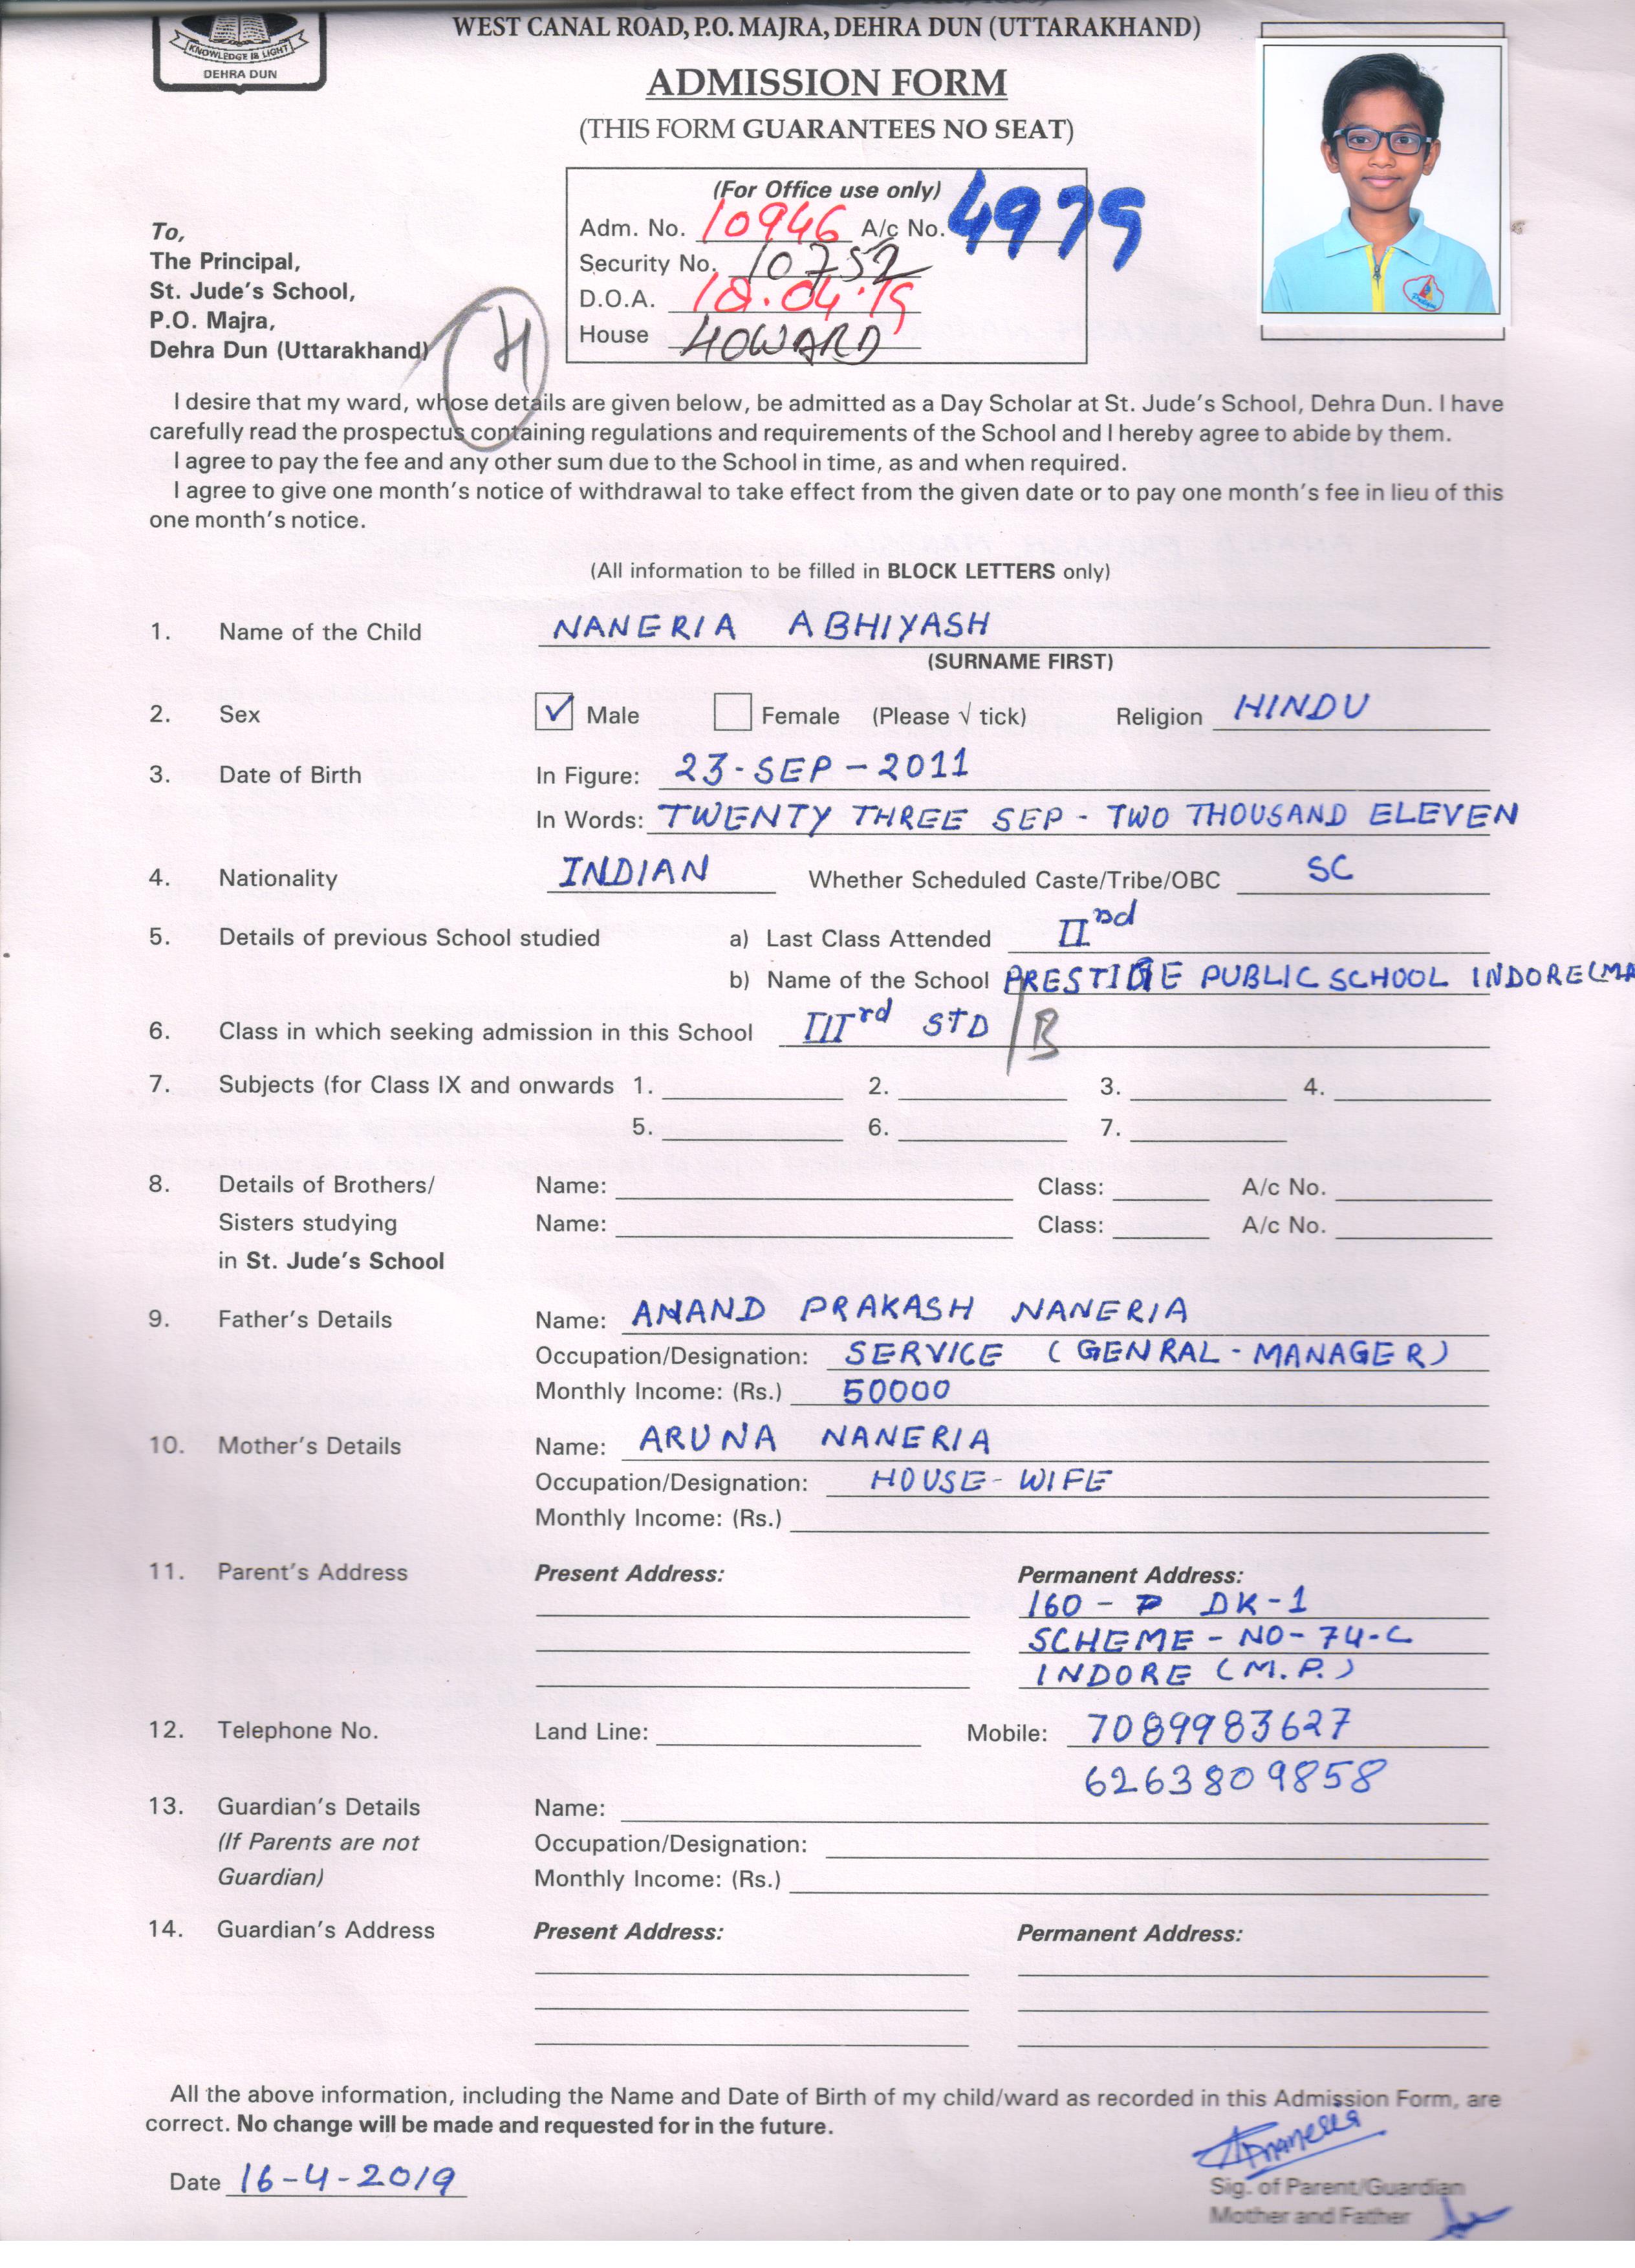 KNOWLEDGE IS LIGHT
DEHRA DUN
WEST CANAL ROAD, P.O. MAJRA, DEHRA DUN (UTTARAKHAND)
ADMISSION FORM
(THIS FORM GUARANTEES NO SEAT)
(For Office use only)
Adm. No. 10946 A/c No. 4979
Security No. 10752
D.O.A. 18.04.19
House HOWARD
To,
The Principal,
St. Jude's School,
P.O. Majra,
Dehra Dun (Uttarakhand)
H
I desire that my ward, whose details are given below, be admitted as a Day Scholar at St. Jude's School, Dehra Dun. I have
carefully read the prospectus containing regulations and requirements of the School and I hereby agree to abide by them.
I agree to pay the fee and any other sum due to the School in time, as and when required.
I agree to give one month's notice of withdrawal to take effect from the given date or to pay one month's fee in lieu of this
one month's notice.
(All information to be filled in BLOCK LETTERS only)
1. Name of the Child NANERIA ABHIYASH
(SURNAME FIRST)
2. Sex ✓ Male Female (Please √ tick) Religion HINDU
3. Date of Birth In Figure: 23-SEP-2011
In Words: TWENTY THREE SEP - TWO THOUSAND ELEVEN
4. Nationality INDIAN Whether Scheduled Caste/Tribe/OBC SC
5. Details of previous School studied a) Last Class Attended IInd
b) Name of the School PRESTIGE PUBLIC SCHOOL INDORE
6. Class in which seeking admission in this School IIIrd STD /B
7. Subjects (for Class IX and onwards 1. 2. 3. 4.
5. 6. 7.
8. Details of Brothers/ Name: Class: A/c No.
Sisters studying Name: Class: A/c No.
in St. Jude's School
9. Father's Details Name: ANAND PRAKASH NANERIA
Occupation/Designation: SERVICE (GENRAL-MANAGER)
Monthly Income: (Rs.) 50000
10. Mother's Details Name: ARUNA NANERIA
Occupation/Designation: HOUSE-WIFE
Monthly Income: (Rs.)
11. Parent's Address Present Address: Permanent Address:
160 - P DK-1
SCHEME-NO-74-C
INDORE (M.P.)
12. Telephone No. Land Line: Mobile: 7089983627
6263809858
13. Guardian's Details Name:
(If Parents are not Occupation/Designation:
Guardian) Monthly Income: (Rs.)
14. Guardian's Address Present Address: Permanent Address:
All the above information, including the Name and Date of Birth of my child/ward as recorded in this Admission Form, are
correct. No change will be made and requested for in the future.
Date 16-4-2019
Sig. of Parent/Guardian
Mother and Father